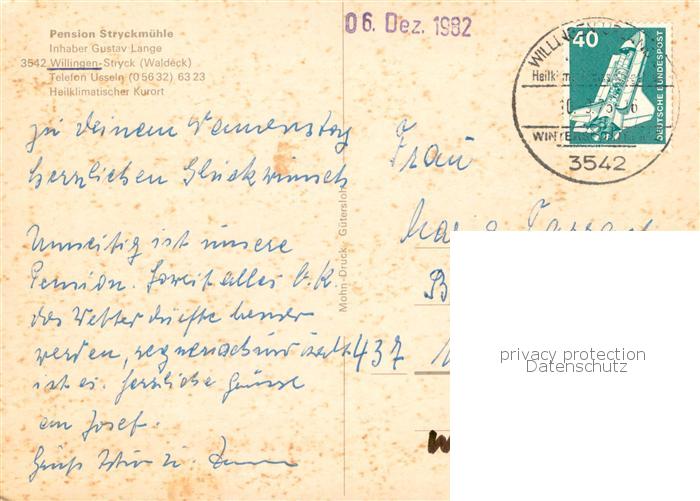 Pension Stryckmühle
Inhaber Gustav Lange
3542 Willingen-Stryck (Waldeck)
Telefon Usseln (0 56 32) 63 23
Heilklimatischer Kurort
06. Dez. 1982
40
DEUTSCHE BUNDESPOST
WILLINGEN
Heilklim
WINTERS
3542
zu Deinem Namenstag
herzlichen Glückwunsch
Umseitig ist unsere
Pension. Soweit alles o.k.
das Wetter dürfte besser
werden, regnerisch und kalt
ist es. Herzliche Grüsse
an Josef.
Gruß
Frau
437
Mohn-Druck Gütersloh
privacy protection
Datenschutz